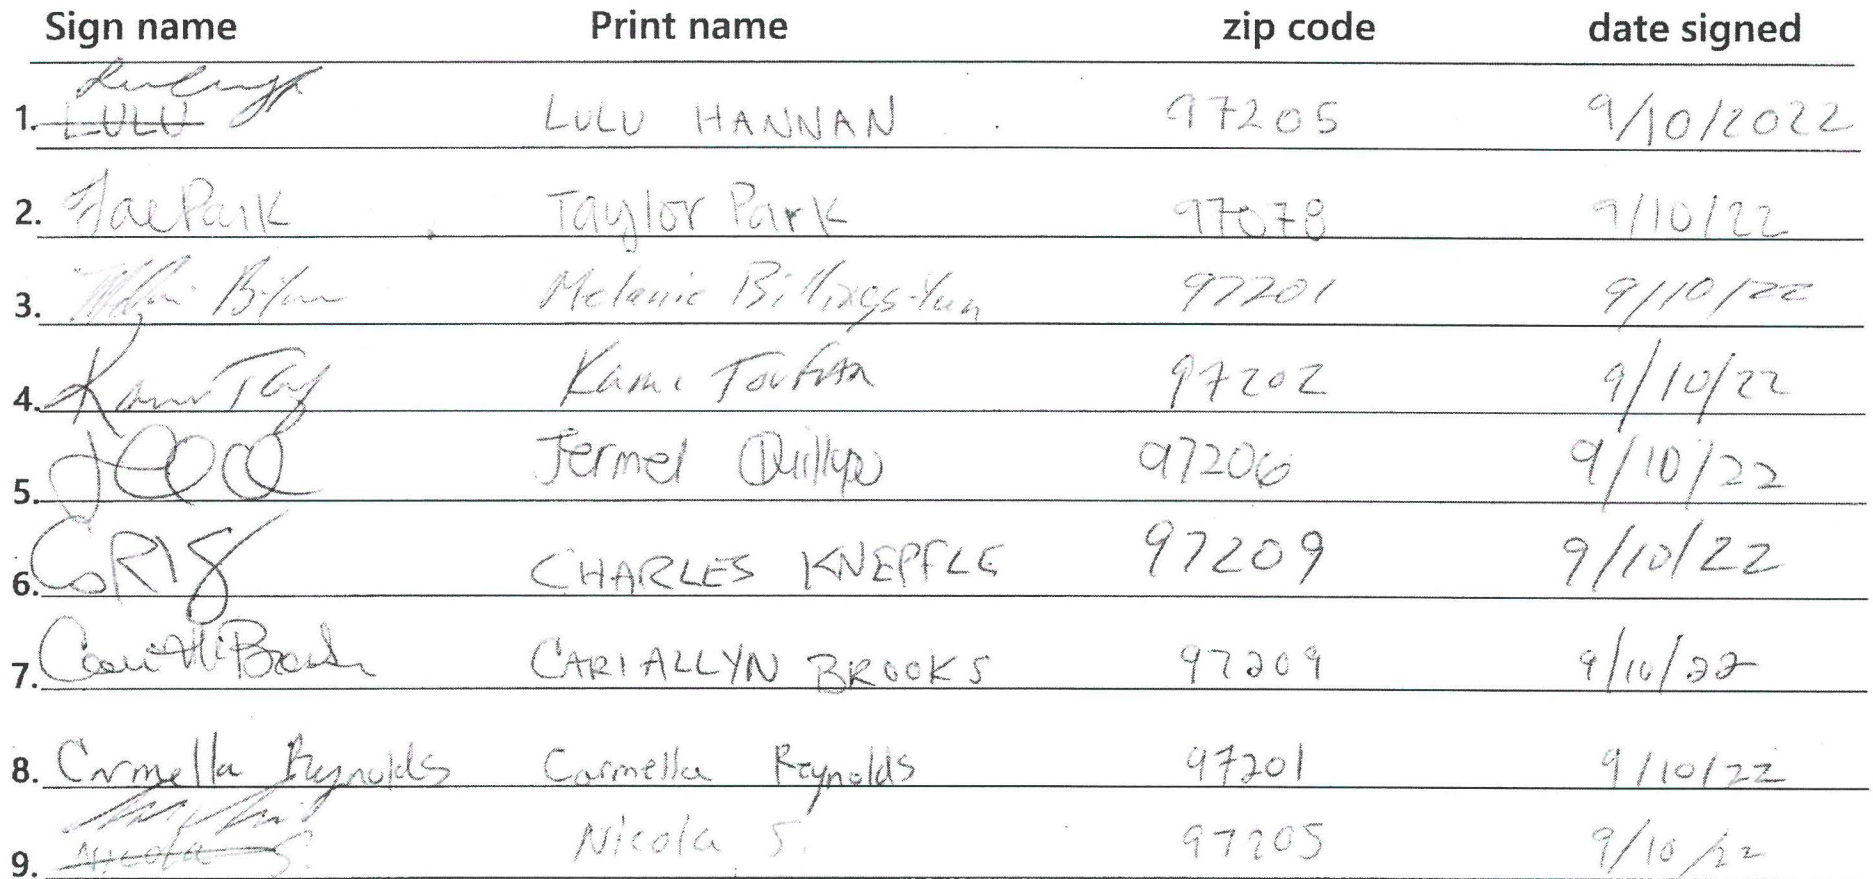 Sign name Print name zip code date signed
1. LULU LULU HANNAN 97205 9/10/2022
2. TaePark Taylor Park 97078 9/10/22
3. Melanie Billings-Yun 97201 9/10/22
4. Kami 97202 9/10/22
5. Jermel 97206 9/10/22
6. CHARLES KNEPFLE 97209 9/10/22
7. CARIALLYN BROOKS 97209 9/10/22
8. Carmella Reynolds Carmella Reynolds 97201 9/10/22
9. Nicola S. Nicola S. 97205 9/10/22